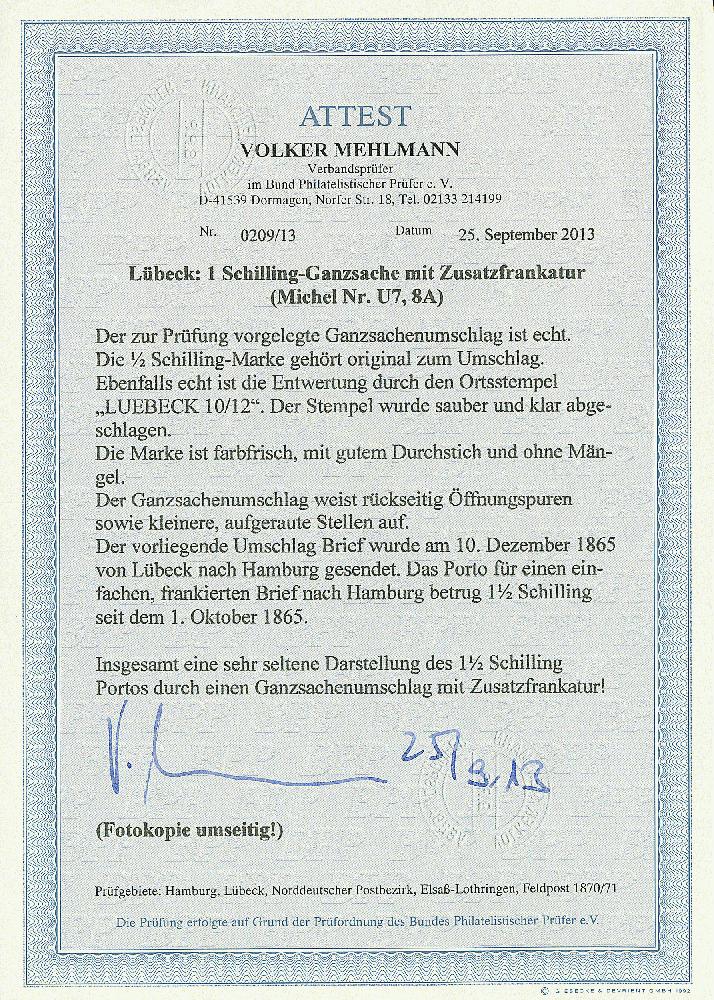 ATTEST
VOLKER MEHLMANN
Verbandsprüfer
im Bund Philatelistischer Prüfer e. V.
D-41539 Dormagen, Norfer Str. 18, Tel. 02133 214199
Nr. 0209/13 Datum 25. September 2013
Lübeck: 1 Schilling-Ganzsache mit Zusatzfrankatur
(Michel Nr. U7, 8A)
Der zur Prüfung vorgelegte Ganzsachenumschlag ist echt.
Die ½ Schilling-Marke gehört original zum Umschlag.
Ebenfalls echt ist die Entwertung durch den Ortsstempel
„LUEBECK 10/12“. Der Stempel wurde sauber und klar abge-
schlagen.
Die Marke ist farbfrisch, mit gutem Durchstich und ohne Män-
gel.
Der Ganzsachenumschlag weist rückseitig Öffnungspuren
sowie kleinere, aufgeraute Stellen auf.
Der vorliegende Umschlag Brief wurde am 10. Dezember 1865
von Lübeck nach Hamburg gesendet. Das Porto für einen ein-
fachen, frankierten Brief nach Hamburg betrug 1½ Schilling
seit dem 1. Oktober 1865.
Insgesamt eine sehr seltene Darstellung des 1½ Schilling
Portos durch einen Ganzsachenumschlag mit Zusatzfrankatur!
25/9.13
(Fotokopie umseitig!)
Prüfgebiete: Hamburg, Lübeck, Norddeutscher Postbezirk, Elsaß-Lothringen, Feldpost 1870/71
Die Prüfung erfolgte auf Grund der Prüfordnung des Bundes Philatelistischer Prüfer e.V.
© GIESECKE & DEVRIENT GMBH 1992